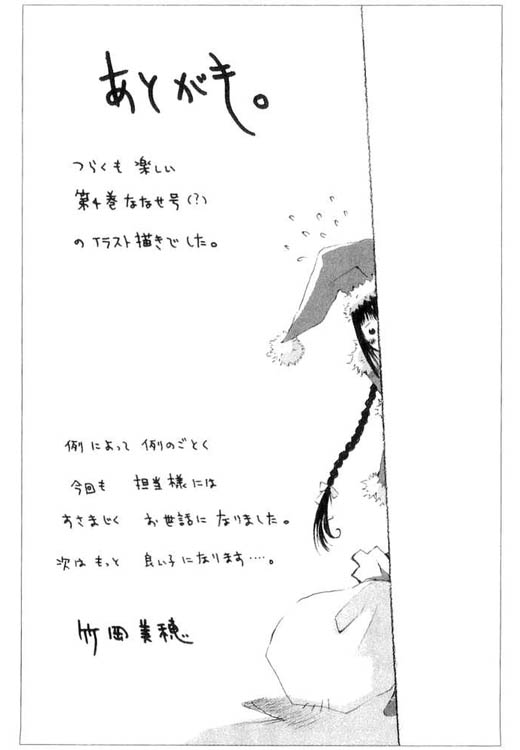 あとがき。
つらくも 楽しい
第4巻ななせ号(?)
の イラスト描きでした。
例によって 例のごとく
今回も 担当様には
すさまじく お世話になりました。
次は もっと 良い子になります‥‥。
竹岡美穂